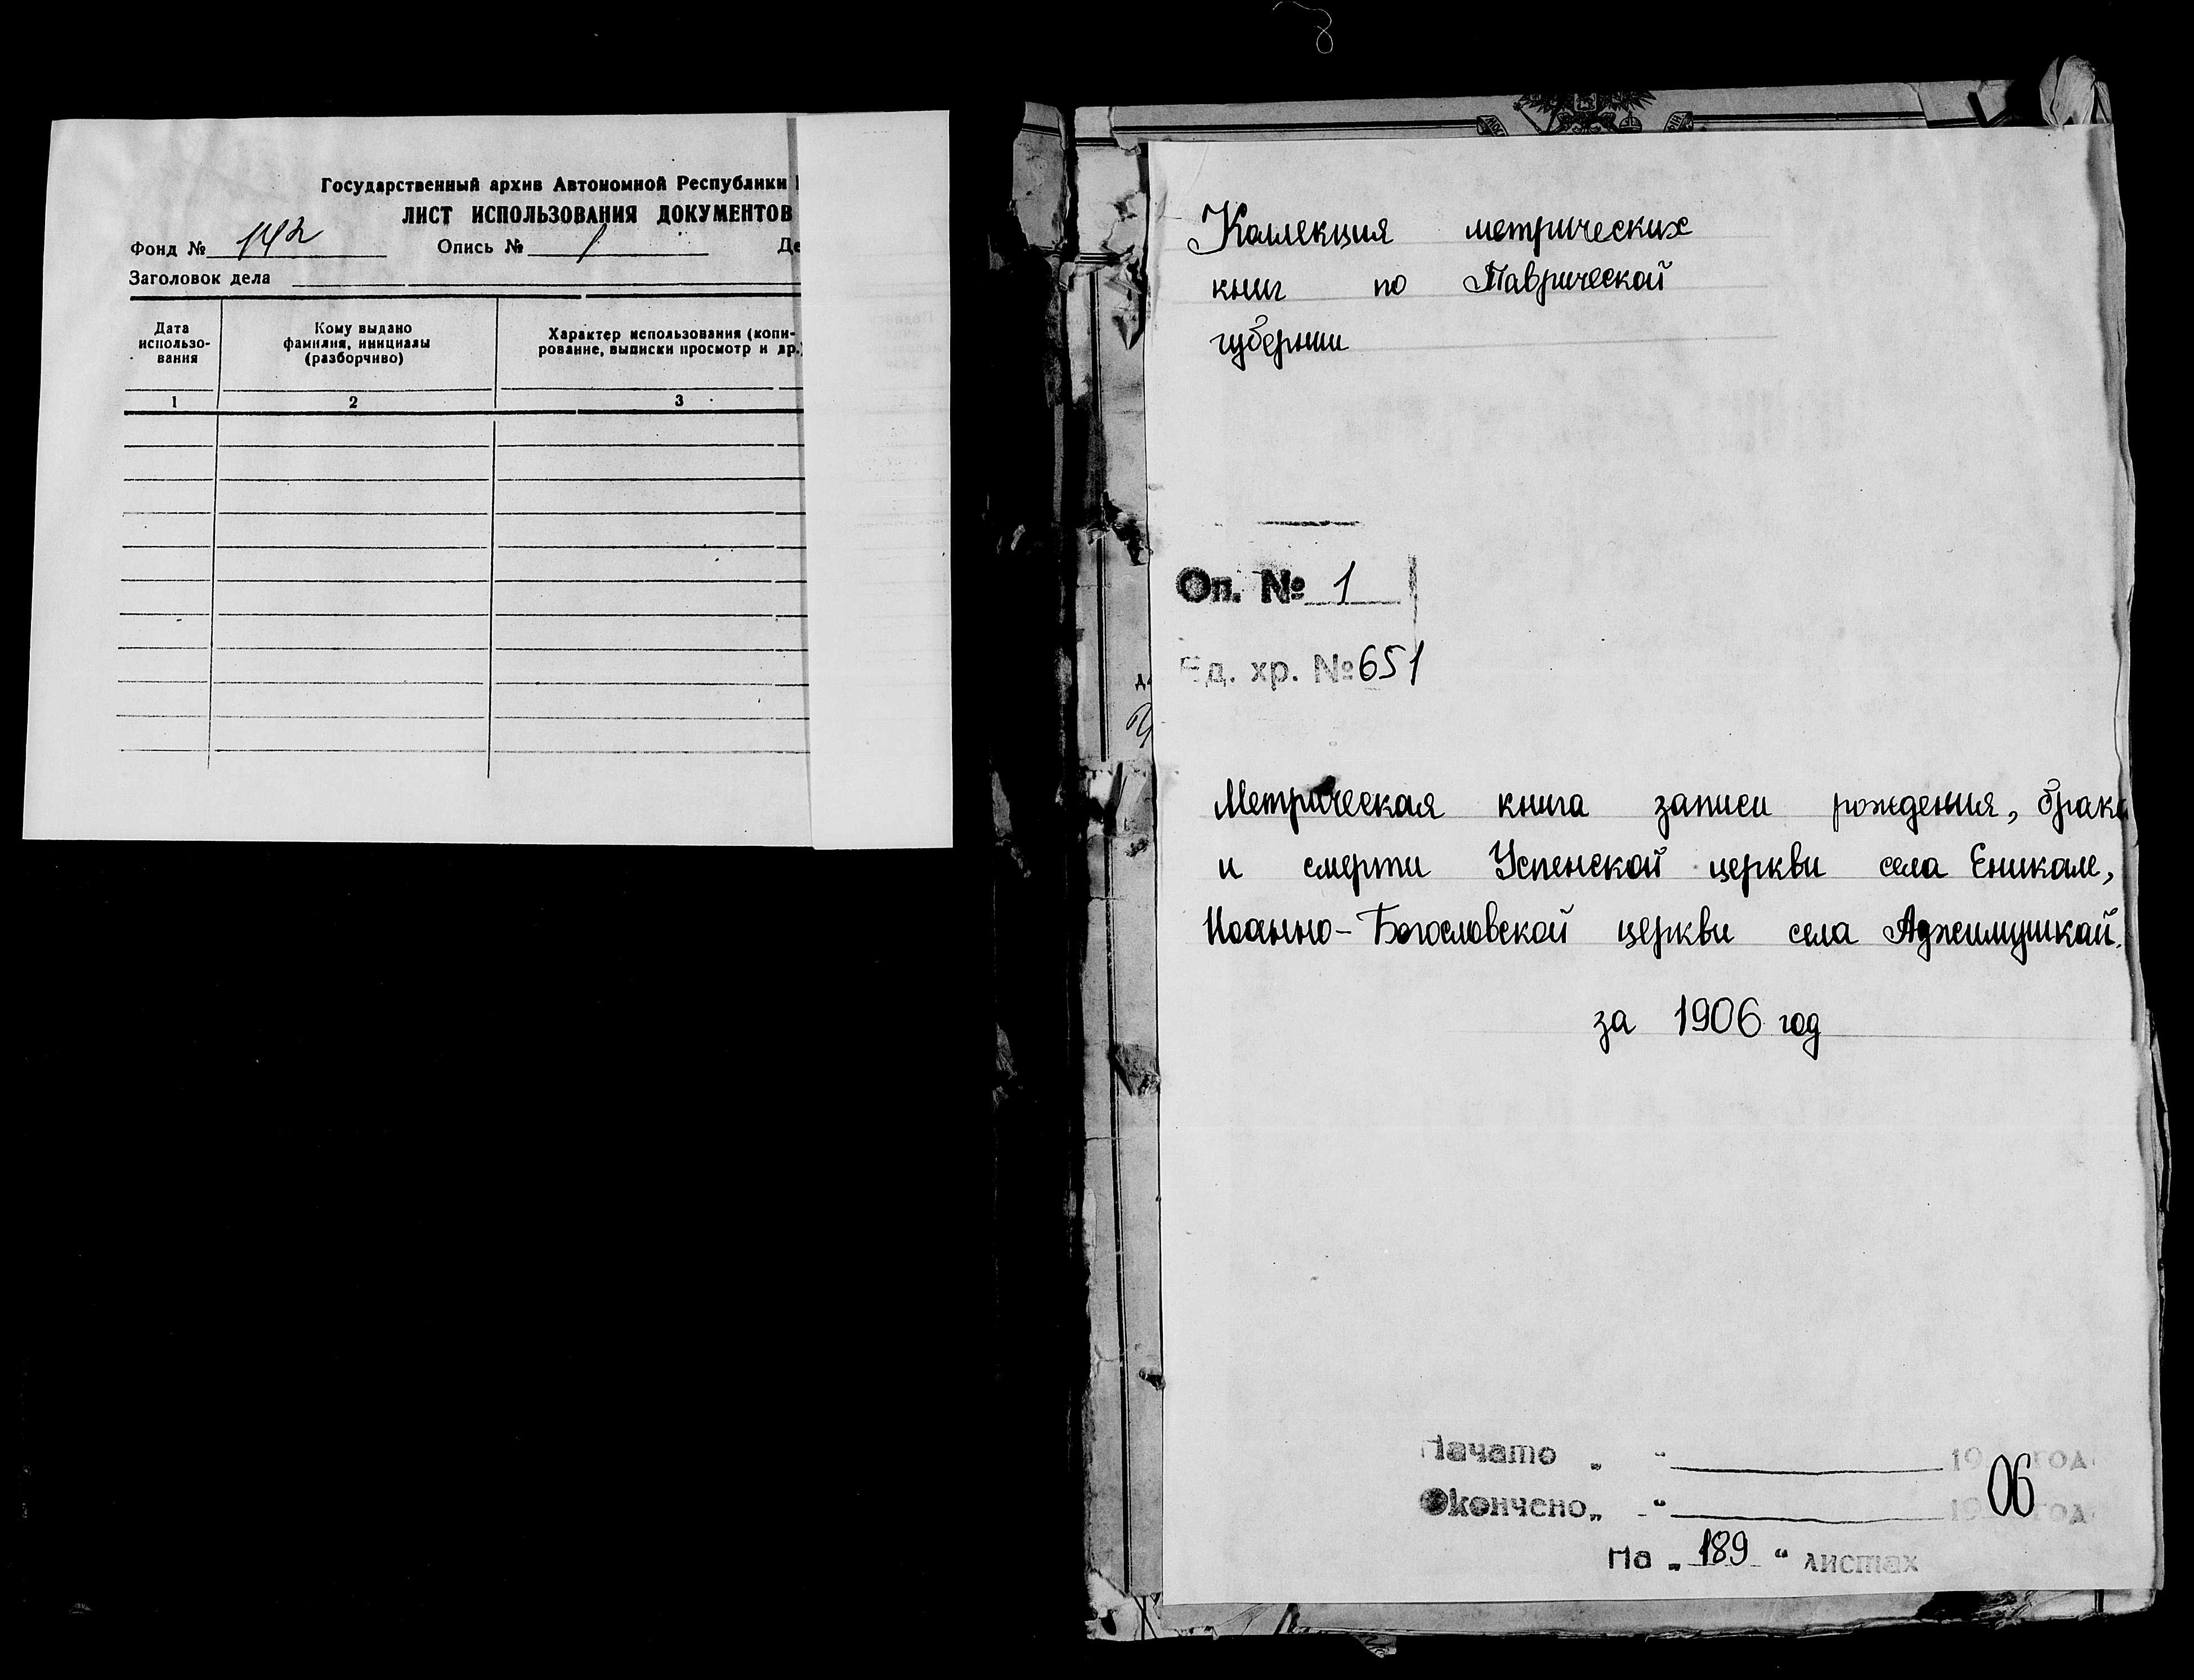 Государственный архив Автономной Республики
ЛИСТ ИСПОЛЬЗОВАНИЯ ДОКУМЕНТОВ
Фонд № 142 Опись № 1 Де
Заголовок дела
Дата использо-вания
Кому выдано фамилия, инициалы (разборчиво)
Характер использования (копи-рование, выписки просмотр и др.)
1 2 3
Коллекция метрических
книг по Таврической
губернии
Оп. № 1
Ед. хр. № 651
Метрическая книга записи рождения, брака
и смерти Успенской церкви села Еникале,
Иоанно-Богословской церкви села Аджимушкай.
за 1906 год
Начато „ “ 19 год
Окончено „ “ 1906 год
На „ 189 “ листах